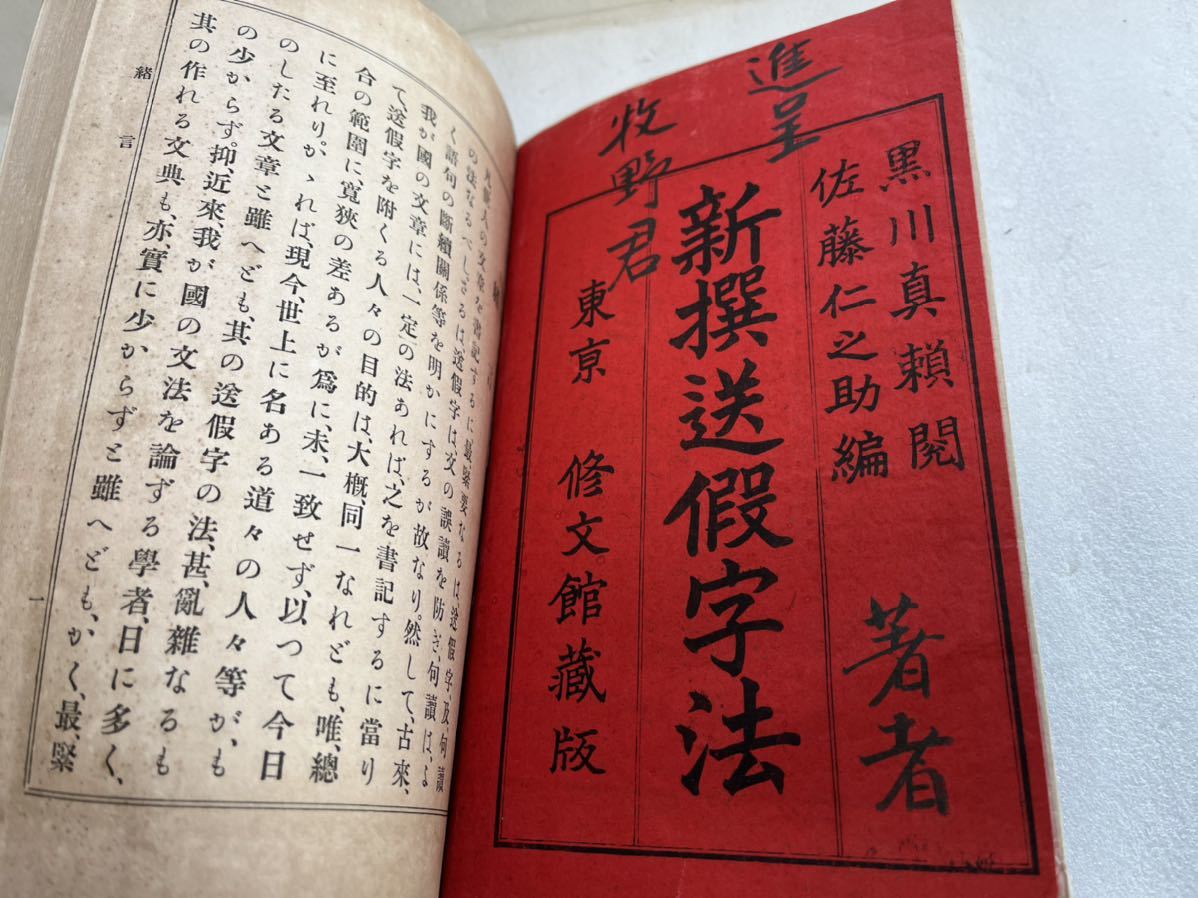 進呈
牧野君
黒川真頼閲
佐藤仁之助編
著者
新撰送假字法
東京 修文館藏版
凡世人の文章を書記するに最緊要なるは送假字及句讀
の法なるべしさるは、送假字は文の誤讀を防ぎ、句讀は、よ
く語句の斷續關係等を明かにするが故なり。然して、古來、
我が國の文章には、一定の法あれば、之を書記するに當り
て、送假字を附くる人々の目的は、大概、同一なれども、唯、總
合の範圍に、寬狹の差あるが爲に、未、一致せず、以つて今日
に至れり。かゝれば、現今、世上に名ある道々の人々等が、も
のしたる文章と雖へども、其の送假字の法、甚、亂雜なるも
の少からず。抑、近來、我が國の文法を論ずる學者、日に多く、
其の作れる文典も、亦、實に少からずと雖へども、かく、最、緊
緒言
一